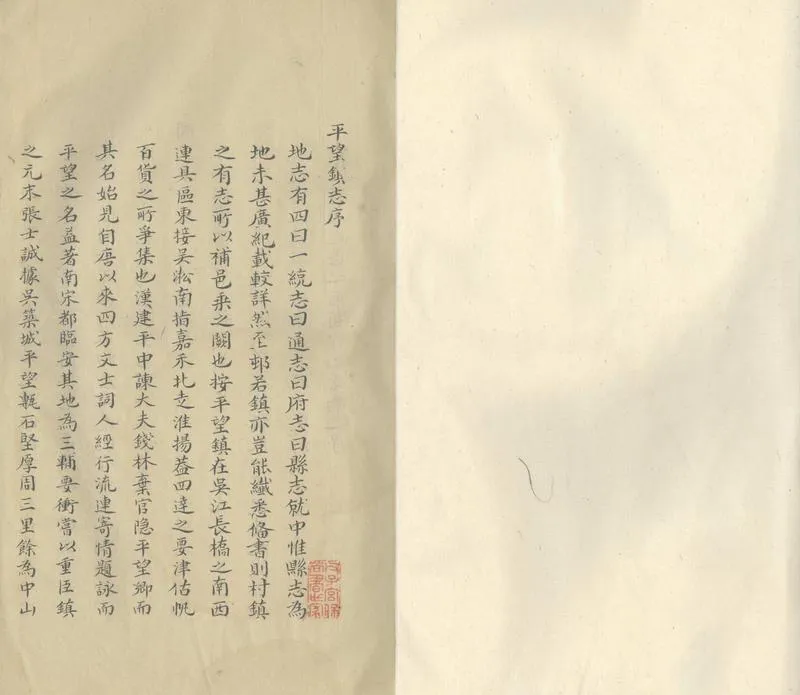 平望鎮志序
地志有四曰一統志曰通志曰府志曰縣志就中惟縣志為
地未甚廣紀載較詳然至邨若鎮亦豈能纖悉俻書則村鎮
之有志所以補邑乘之闕也按平望鎮在吳江長橋之南西
連具區東接吳淞南指嘉禾北走淮揚葢四達之要津估帆
百貨之所爭集也漢建平中諫大夫錢林棄官隐平望鄉而
其名始見自唐以來四方文士詞人經行流連寄情題詠而
平望之名益著南宋都臨安其地為三輔要衝嘗以重臣鎮
之元末張士誠據吳築城平望甎石堅厚周三里餘為中山